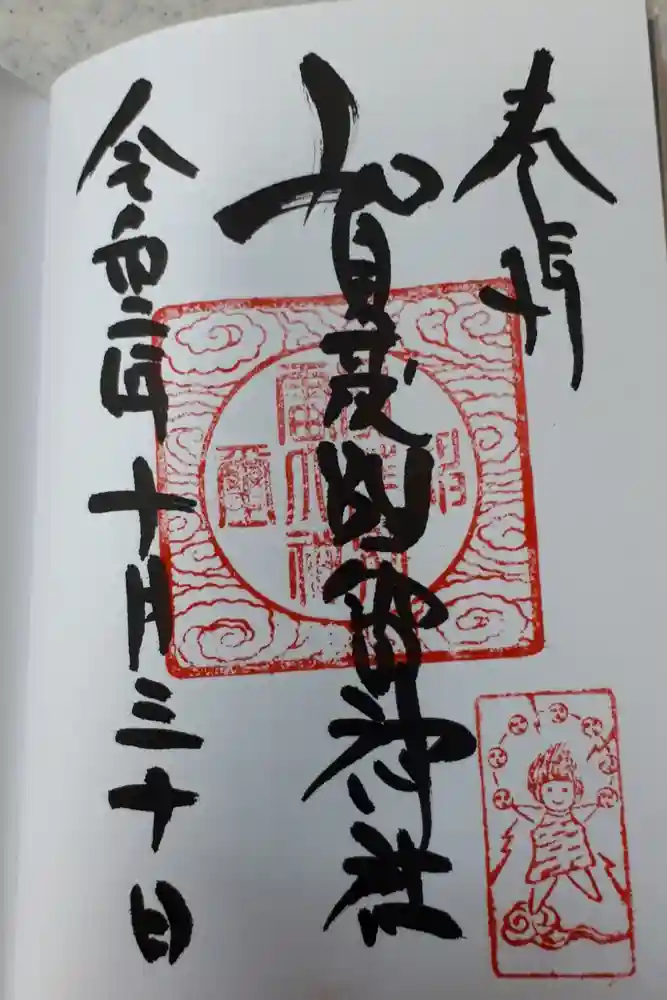 奉拝
賀茂別雷神社
令和二年十月三十日